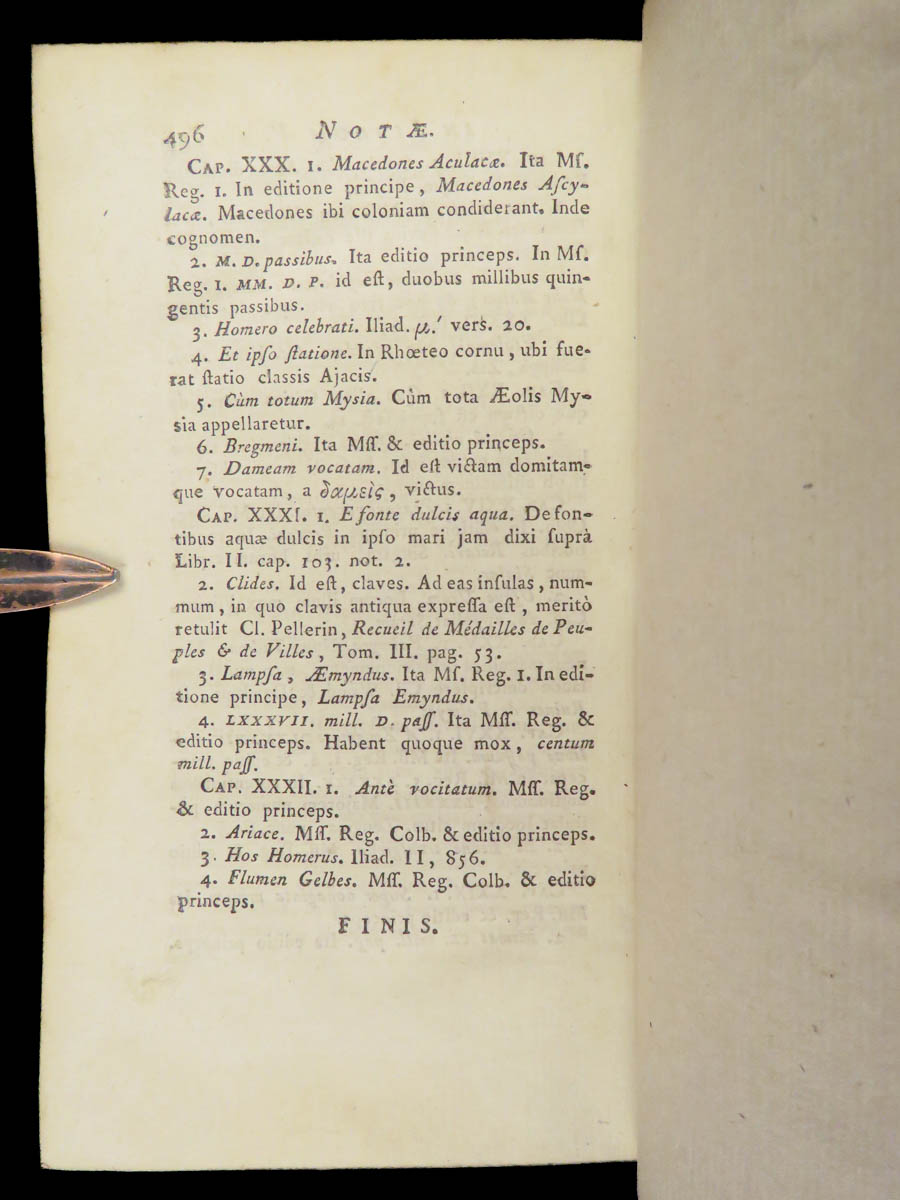 496 NOTÆ.
CAP. XXX. 1. Macedones Aculacæ. Ita Mſ.
Reg. 1. In editione principe, Macedones Aſcy-
lacæ. Macedones ibi coloniam condiderant. Inde
cognomen.
2. M. D. paſſibus. Ita editio princeps. In Mſ.
Reg. 1. MM. D. P. id eſt, duobus millibus quin-
gentis paſſibus.
3. Homero celebrati. Iliad. μ.′ vers. 20.
4. Et ipſo ſtatione. In Rhœteo cornu, ubi fue-
rat ſtatio claſſis Ajacis.
5. Cùm totum Myſia. Cùm tota Æolis My-
sia appellaretur.
6. Bregmeni. Ita Mſſ. & editio princeps.
7. Dameam vocatam. Id eſt victam domitam-
que vocatam, a δαμεὶς, victus.
CAP. XXXI. 1. E fonte dulcis aqua. De fon-
tibus aquæ dulcis in ipſo mari jam dixi ſuprà
Libr. II. cap. 103. not. 2.
2. Clides. Id eſt, claves. Ad eas inſulas, num-
mum, in quo clavis antiqua expreſſa eſt, meritò
retulit Cl. Pellerin, Recueil de Médailles de Peu-
ples & de Villes, Tom. III. pag. 53.
3. Lampſa, Æmyndus. Ita Mſ. Reg. 1. In edi-
tione principe, Lampſa Emyndus.
4. LXXXVII. mill. D. paſſ. Ita Mſſ. Reg. &
editio princeps. Habent quoque mox, centum
mill. paſſ.
CAP. XXXII. 1. Antè vocitatum. Mſſ. Reg.
& editio princeps.
2. Ariace. Mſſ. Reg. Colb. & editio princeps.
3. Hos Homerus. Iliad. II, 856.
4. Flumen Gelbes. Mſſ. Reg. Colb. & editio
princeps.
FINIS.